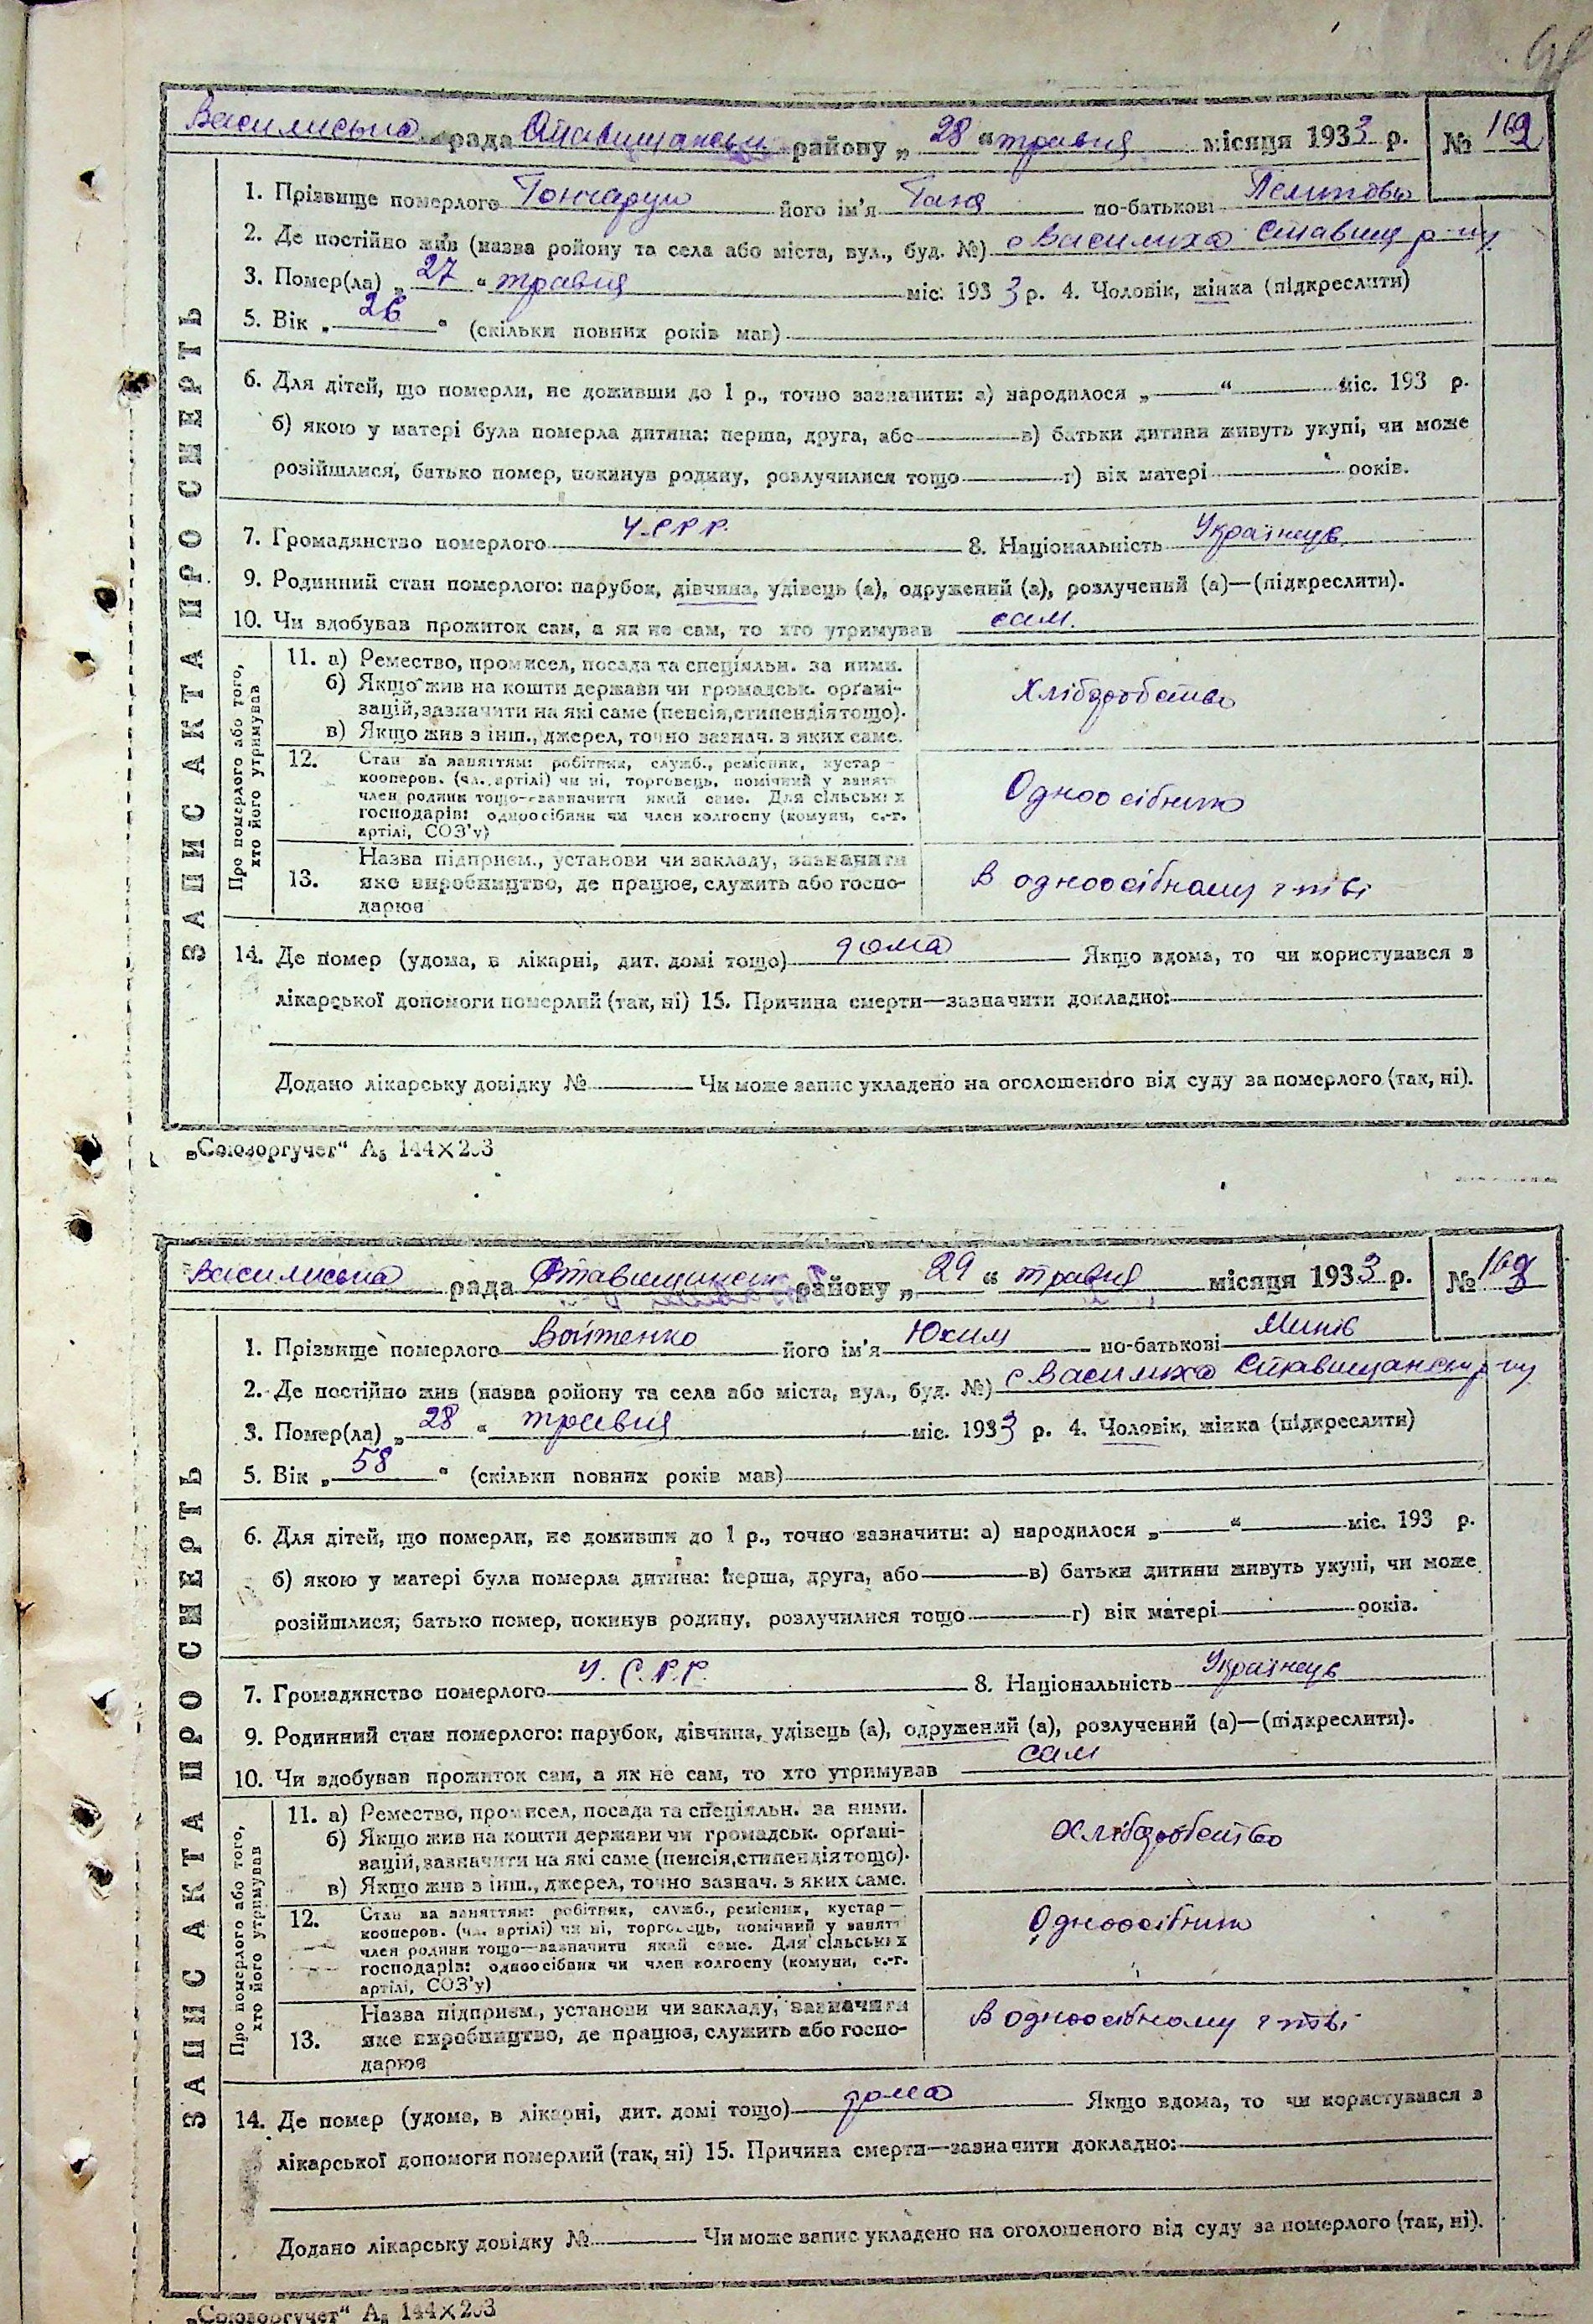 Василиська рада Ставищанськ району „ 28 “ травня місяця 1933 р. №
1. Прізвище померлого Гончарук його ім'я Ганя по-батькові
2. Де постійно жив (назва ройону та села або міста, вул., буд. №) с Василиха Ставищ р-ну
3. Помер(ла) „ 27 “ травня міс. 1933 р. 4. Чоловік, жінка (підкреслити)
5. Вік „ 26 “ (скільки повних років мав)
6. Для дітей, що померли, не доживши до 1 р., точно зазначити: а) народилося „ “ міс. 193 р.
б) якою у матері була померла дитина: перша, друга, або в) батьки дитини живуть укупі, чи може
розійшлися, батько помер, покинув родину, розлучилися тощо г) вік матері років.
7. Громадянство померлого У.С.Р.Р. 8. Національність Українець
9. Родинний стан померлого: парубок, дівчина, удівець (а), одружений (а), розлучений (а)—(підкреслити).
10. Чи здобував прожиток сам, а як не сам, то хто утримував сам.
ЗАПИС АКТА ПРО СМЕРТЬ
Про померлого або того,
хто його утримував
11. а) Ремество, промисел, посада та спеціяльн. за ними.
б) Якщо жив на кошти держави чи громадськ. орґані-
зацій, зазначити на які саме (пенсія, стипендія тощо).
в) Якщо жив з інш., джерел, точно зазнач. з яких саме.
Хлібробство
12. Стан за заняттям: робітник, служб., ремісник, кустар—
кооперов. (чл. артілі) чи ні, торговець, помічний у занятт
член родини тощо—зазначити який саме. Для сільських
господарів: одноосібник чи член колгоспу (комуни, с.-г.
артілі, СОЗ'у)
Одноосібник
13. Назва підприєм., установи чи закладу, зазначити
яке виробництво, де працює, служить або госпо-
дарює
В одноосібному г-тві
14. Де помер (удома, в лікарні, дит. домі тощо) дома Якщо вдома, то чи користувався з
лікарської допомоги померлий (так, ні) 15. Причина смерти—зазначити докладно:
Додано лікарську довідку № Чи може запис укладено на оголошеного від суду за померлого (так, ні).
„Союзоргучет“ А₅ 144×203
Василиська рада Ставищанськ району „ 29 “ травня місяця 1933 р. №
1. Прізвище померлого Войтенко його ім'я Юхим по-батькові Минів
2. Де постійно жив (назва ройону та села або міста, вул., буд. №) с Василиха Ставищанськ р-ну
3. Помер(ла) „ 28 “ травня міс. 1933 р. 4. Чоловік, жінка (підкреслити)
5. Вік „ 58 “ (скільки повних років мав)
6. Для дітей, що померли, не доживши до 1 р., точно зазначити: а) народилося „ “ міс. 193 р.
б) якою у матері була померла дитина: перша, друга, або в) батьки дитини живуть укупі, чи може
розійшлися, батько помер, покинув родину, розлучилися тощо г) вік матері років.
7. Громадянство померлого У.С.Р.Р. 8. Національність Українець
9. Родинний стан померлого: парубок, дівчина, удівець (а), одружений (а), розлучений (а)—(підкреслити).
10. Чи здобував прожиток сам, а як не сам, то хто утримував сам
ЗАПИС АКТА ПРО СМЕРТЬ
Про померлого або того,
хто його утримував
11. а) Ремество, промисел, посада та спеціяльн. за ними.
б) Якщо жив на кошти держави чи громадськ. орґані-
зацій, зазначити на які саме (пенсія, стипендія тощо).
в) Якщо жив з інш., джерел, точно зазнач. з яких саме.
Хлібробство
12. Стан за заняттям: робітник, служб., ремісник, кустар—
кооперов. (чл. артілі) чи ні, торговець, помічний у занятт
член родини тощо—зазначити який саме. Для сільських
господарів: одноосібник чи член колгоспу (комуни, с.-г.
артілі, СОЗ'у)
Одноосібник
13. Назва підприєм., установи чи закладу, зазначити
яке виробництво, де працює, служить або госпо-
дарює
В одноосібному г-тві
14. Де помер (удома, в лікарні, дит. домі тощо) дома Якщо вдома, то чи користувався з
лікарської допомоги померлий (так, ні) 15. Причина смерти—зазначити докладно:
Додано лікарську довідку № Чи може запис укладено на оголошеного від суду за померлого (так, ні).
„Союзоргучет“ А₅ 144×203